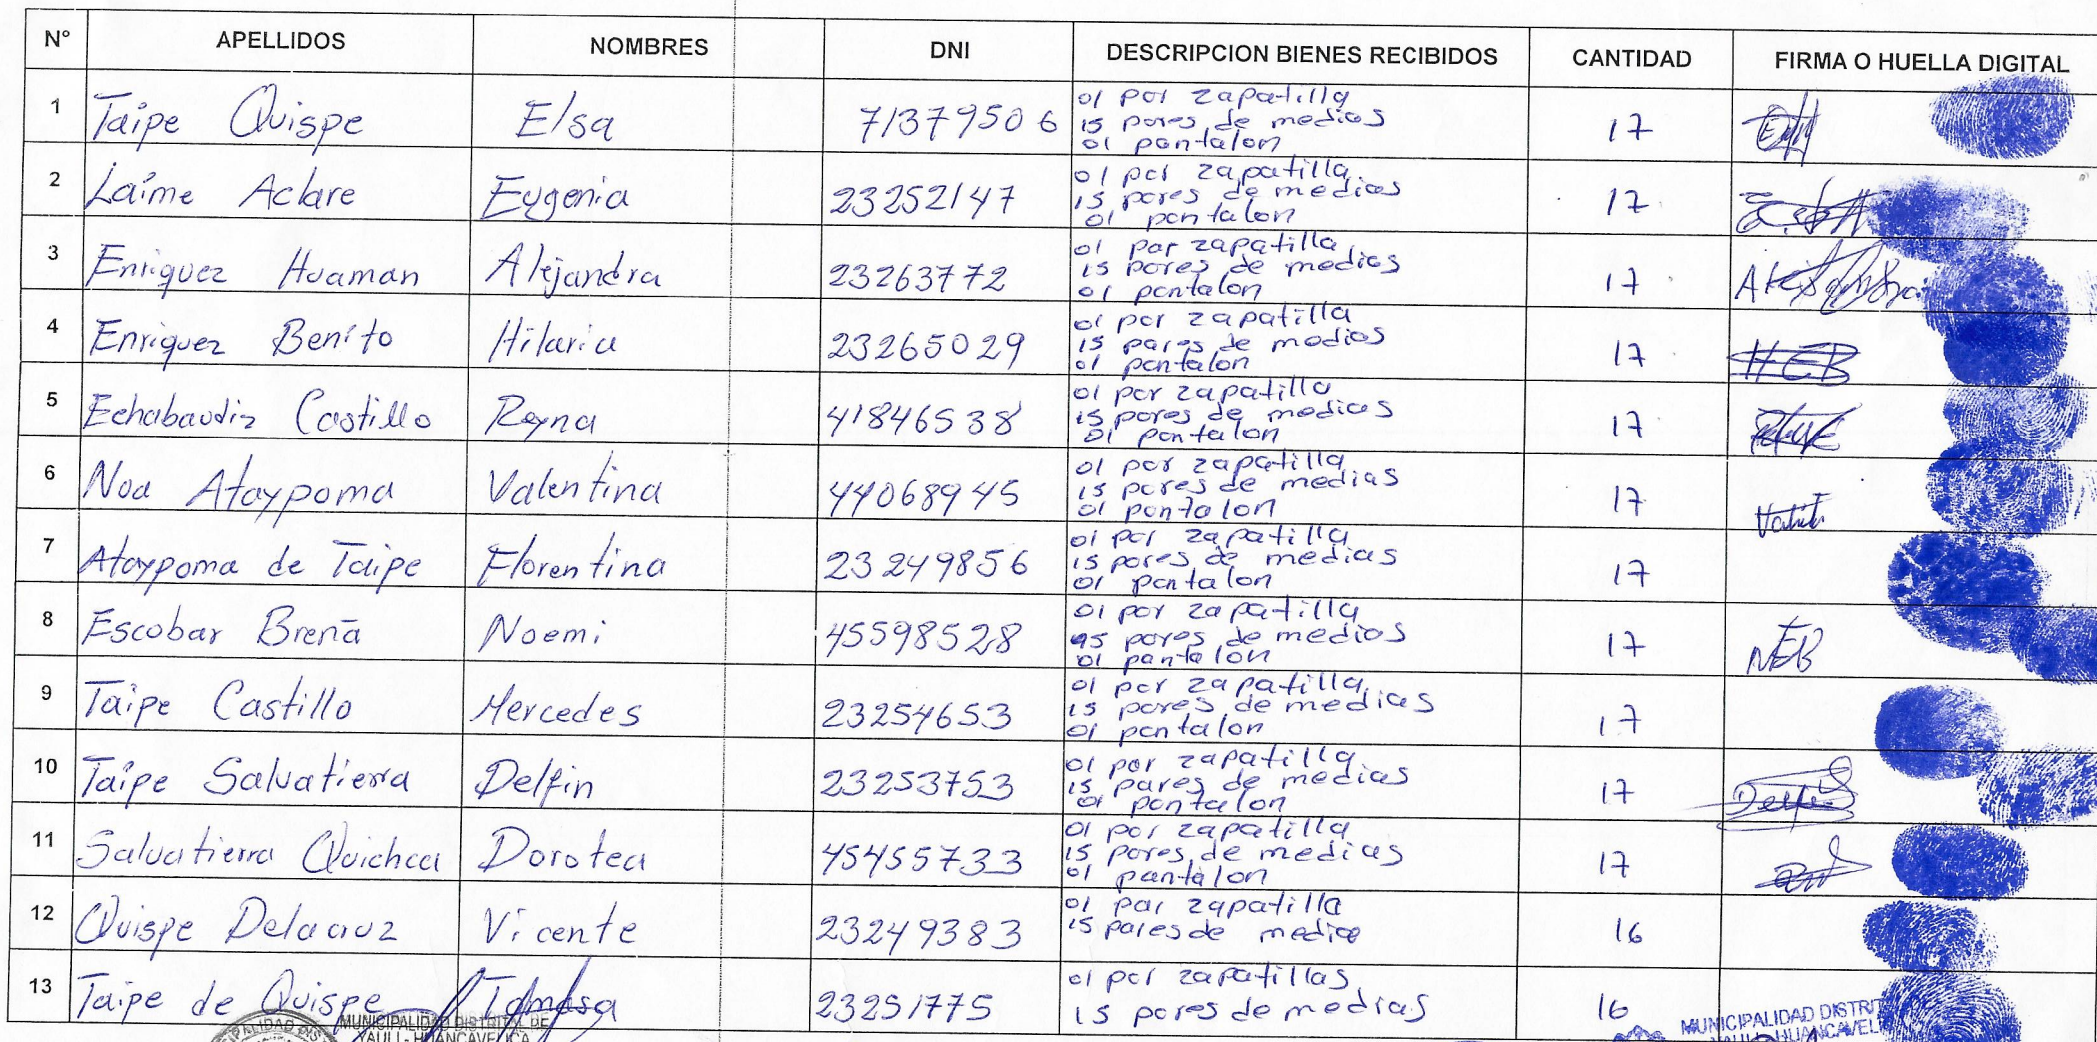 N° APELLIDOS NOMBRES DNI DESCRIPCION BIENES RECIBIDOS CANTIDAD FIRMA O HUELLA DIGITAL
1 Taipe Quispe Elsa 71379506 01 par zapatilla 17
15 pares de medias
01 pantalon
2 Laime Aclare Eugenia 23252147 01 par zapatilla 17
15 pares de medias
01 pantalon
3 Enriquez Huaman Alejandra 23263772 01 par zapatilla 17
15 pares de medias
01 pantalon
4 Enriquez Benito Hilaria 23265029 01 par zapatilla 17 HEB
15 pares de medias
01 pantalon
5 Echabaudiz Castillo Reyna 41846538 01 par zapatilla 17
15 pares de medias
01 pantalon
6 Noa Ataypoma Valentina 44068945 01 par zapatilla 17
15 pares de medias
01 pantalon
7 Ataypoma de Taipe Florentina 23249856 01 par zapatilla 17
15 pares de medias
01 pantalon
8 Escobar Breña Noemi 45598528 01 par zapatilla 17 NEB
15 pares de medias
01 pantalon
9 Taipe Castillo Mercedes 23254653 01 par zapatilla 17
15 pares de medias
01 pantalon
10 Taipe Salvatierra Delfin 23253753 01 par zapatilla 17
15 pares de medias
01 pantalon
11 Salvatierra Quichca Dorotea 45455733 01 par zapatilla 17
15 pares de medias
01 pantalon
12 Quispe Delacruz Vicente 23249383 01 par zapatilla 16
15 pares de media
13 Taipe de Quispe Tomasa 23251775 01 par zapatillas 16
15 pares de medias
MUNICIPALIDAD DISTRITAL DE
YAULI - HUANCAVELICA
MUNICIPALIDAD DISTRIT
YAULI - HUANCAVELI